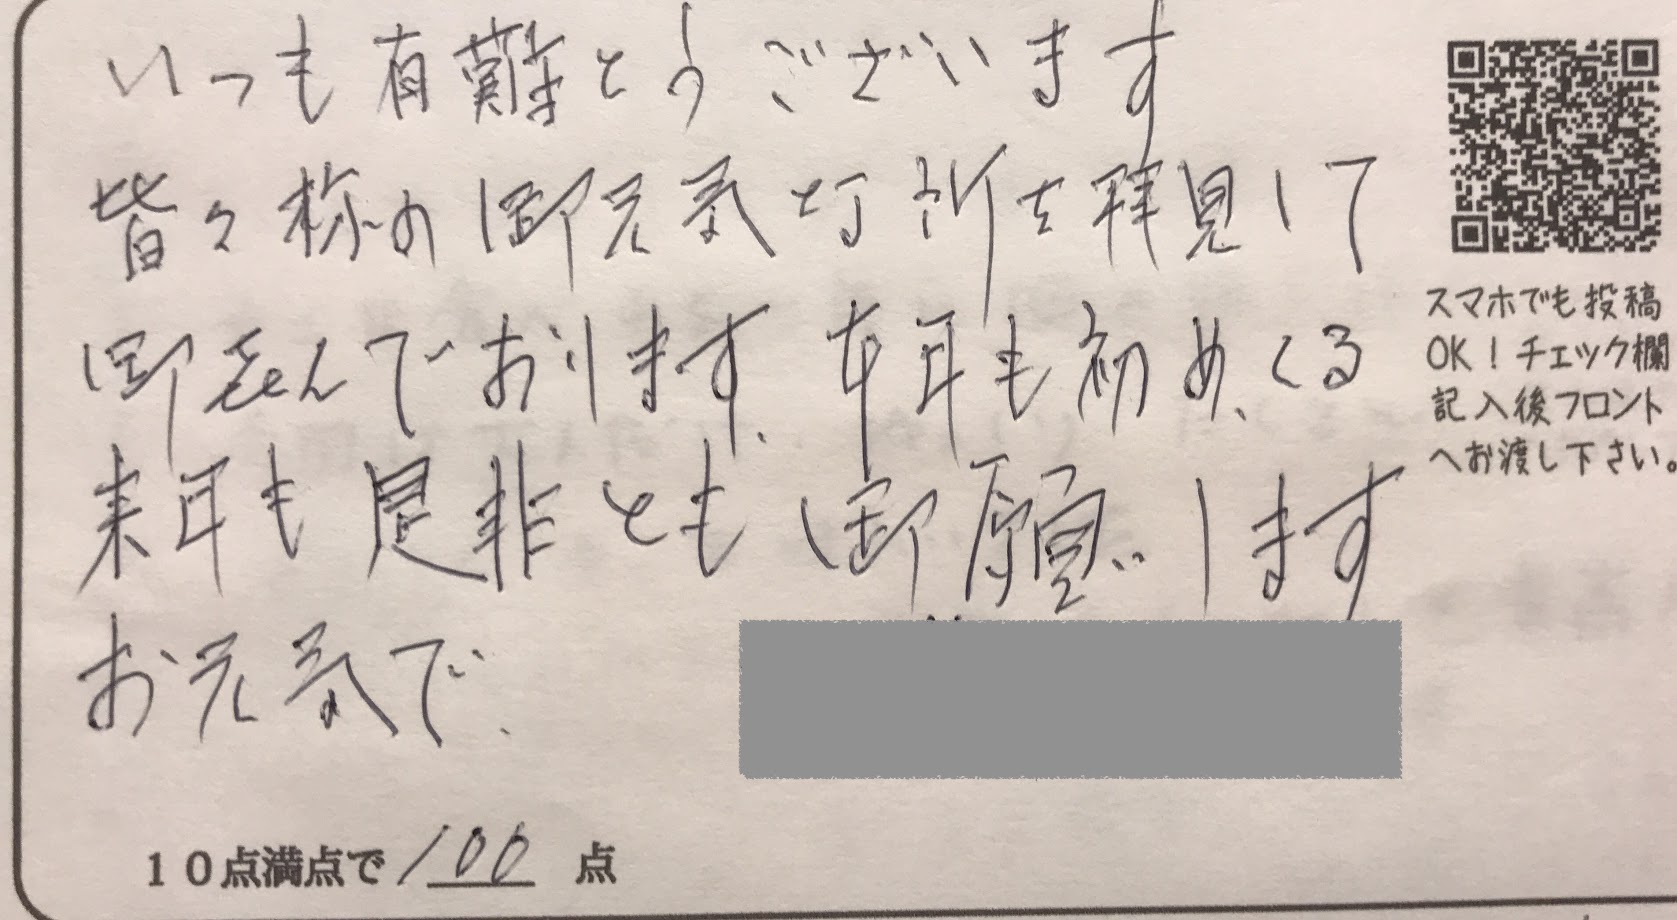 いつも有難とうございます
皆々称の御元気な所を拝見して
御喜んでおります、本年も初め、くる
来年も是非とも御願いします
お元気で、
スマホでも投稿
OK！チェック欄
記入後フロント
へお渡し下さい。
10点満点で100点